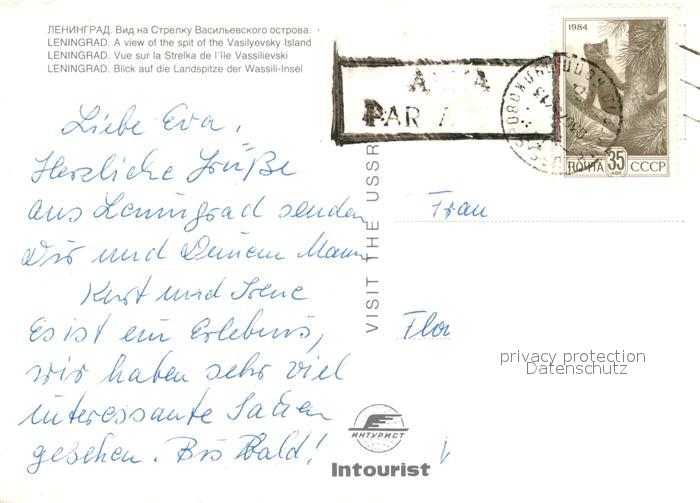 ЛЕНИНГРАД. Вид на Стрелку Васильевского острова.
LENINGRAD. A view of the spit of the Vasilyevsky Island
LENINGRAD. Vue sur la Strelka de l'île Vassilievski
LENINGRAD. Blick auf die Landspitze der Wassili-Insel
Liebe Eva,
Herzliche Grüße
aus Leningrad senden
Dir und Deinem Mann
Kurt und Irene
Es ist ein Erlebnis,
wir haben sehr viel
interessante Sachen
gesehen. Bis Bald!
VISIT THE USSR
PAR
1984
35
КОП
ПОЧТА СССР
Frau
privacy protection
Datenschutz
ИНТУРИСТ
Intourist